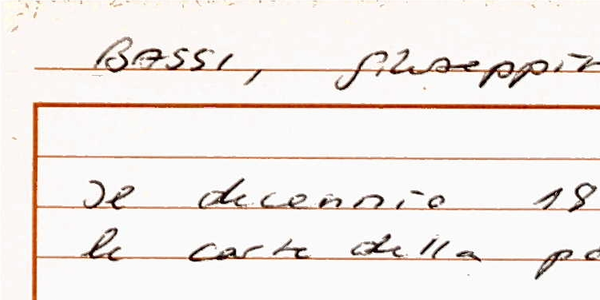 BASSI, Giuseppin
Il decennio 18
le carte della po